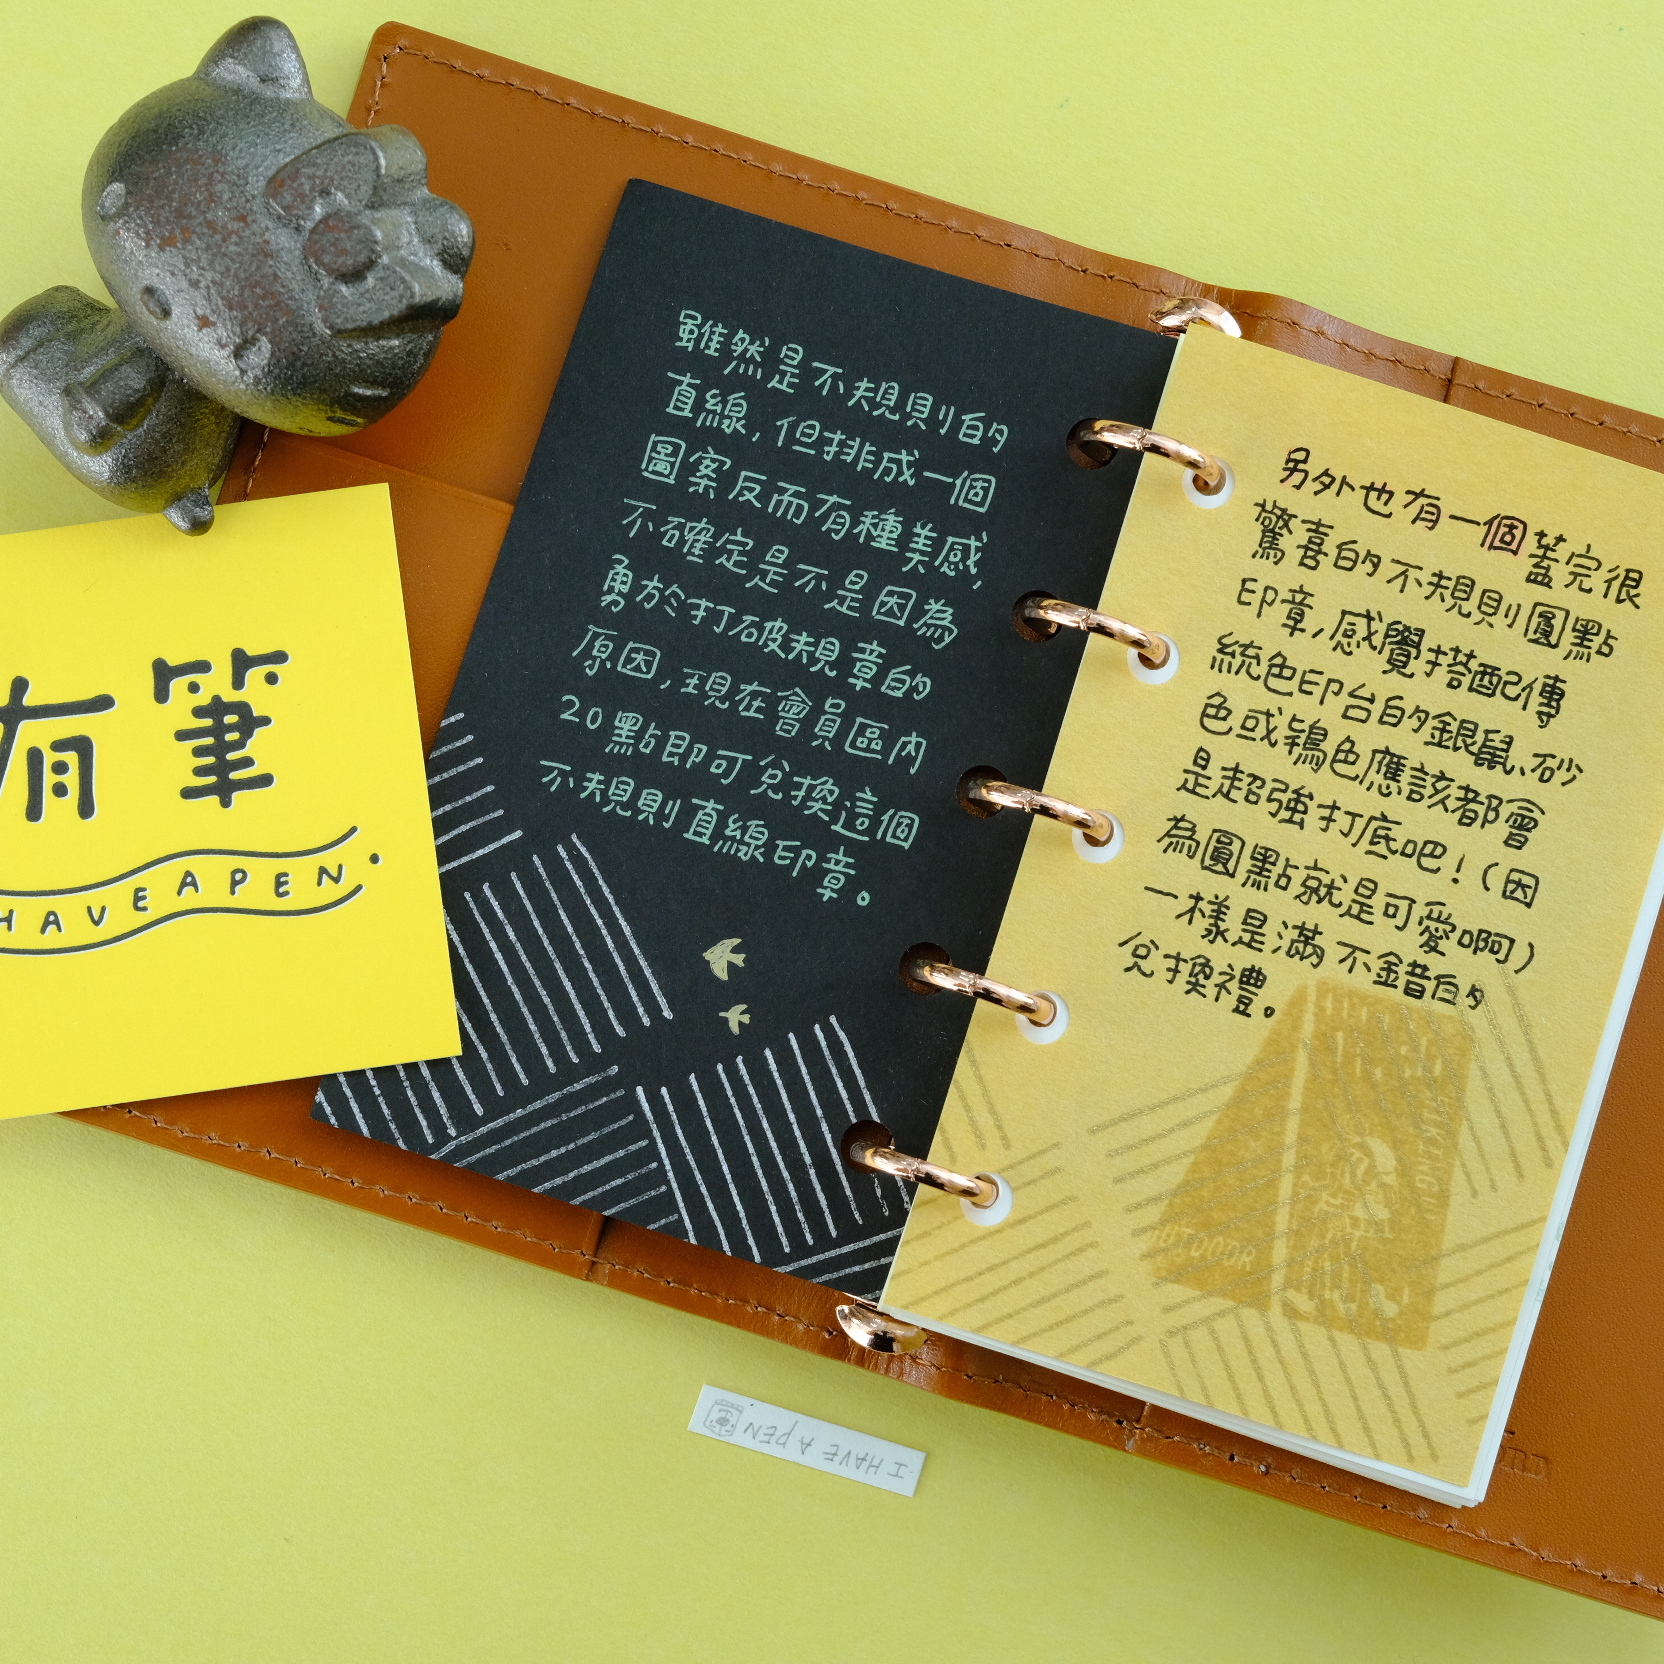 雖然是不規則的
直線，但排成一個
圖案反而有種美感，
不確定是不是因為
勇於打破規章的
原因，現在會員區內
20點即可兌換這個
不規則直線印章。
另外也有一個蓋完很
驚喜的不規則圓點
印章，感覺搭配傳
統色印台的銀鼠、砂
色或鴇色應該都會
是超強打底吧！（因
為圓點就是可愛啊）
一樣是滿不錯的
兌換禮。
有筆
HAVE A PEN.
OUTDOOR
I HAVE A PEN